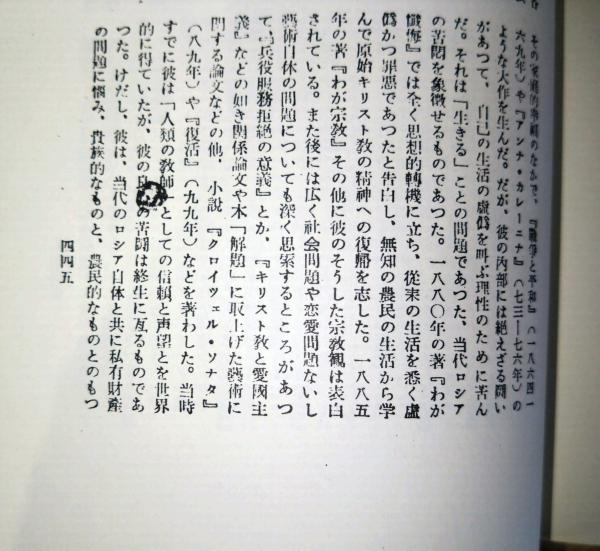 その家庭的幸福のなかで、『戦争と平和』（一八六四ー
六九年）や『アンナ・カレーニナ』（七三ー七六年）の
ような大作を生んだ。だが、彼の内部には絶えざる闘い
があつて、自己の生活の虚偽を叫ぶ理性のために苦ん
だ。それは「生きる」ことの問題であつた、当代ロシア
の苦悶を象徴せるものであつた。一八八〇年の著『わが
懺悔』では全く思想的轉機に立ち、従来の生活を悉く虚
偽かつ罪悪であつたと告白し、無知の農民の生活から学
んで原始キリスト教の精神への復帰を志した。一八八五
年の著『わが宗教』その他に彼のそうした宗教観は表白
されている。また後には広く社会問題や恋愛問題ないし
藝術自体の問題についても深く思索するところがあつ
て『兵役服務拒絶の意義』とか、『キリスト教と愛國主
義』などの如き関係論文や本「解題」に取上げた藝術に
関する論文などの他、小説『クロイツェル・ソナタ』
（八九年）や『復活』（九九年）などを著わした。当時
すでに彼は「人類の教師」としての信頼と声望とを世界
的に得ていたが、彼の の苦悶は終生に亙るものであ
つた。けだし、彼は、当代のロシア自体と共に私有財産
の問題に悩み、貴族的なものと、農民的なものとのもつ
四四五